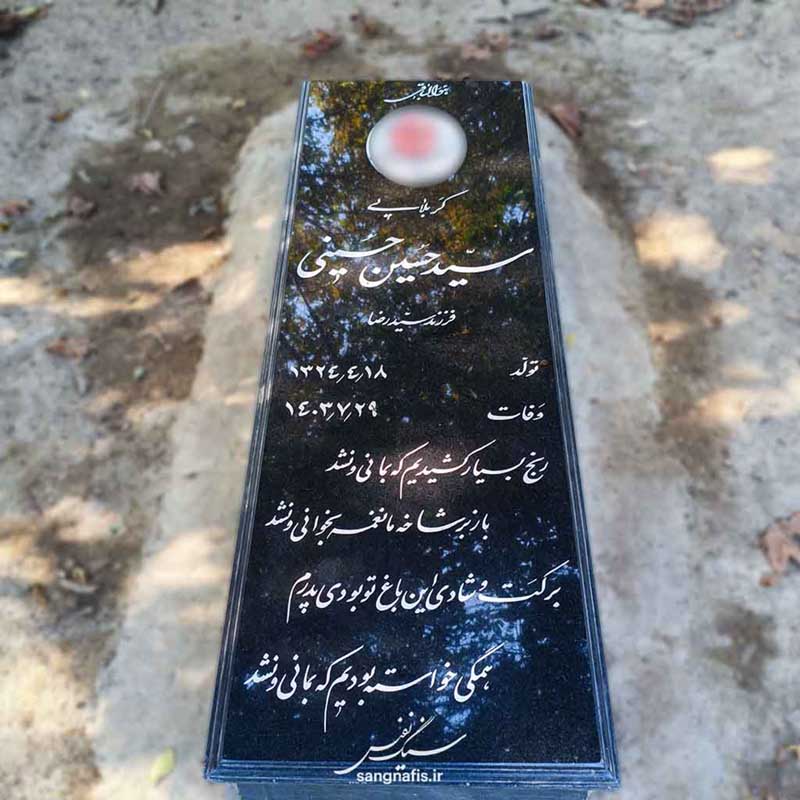 کربلایی
سیّد حُسین حُسینی
فرزند سیدرضا
تولّد ۱۳۲٤٫٤٫۱۸
وفات ۱٤۰۳٫۷٫۲۹
رنج بسیار کشیدیم که بمانی و نشد
باز بر شاخه ما نغمه بخوانی و نشد
برکت و شادی این باغ تو بودی پدرم
همگی خواسته بودیم که بمانی و نشد
سنگ نفیس
sangnafis.ir